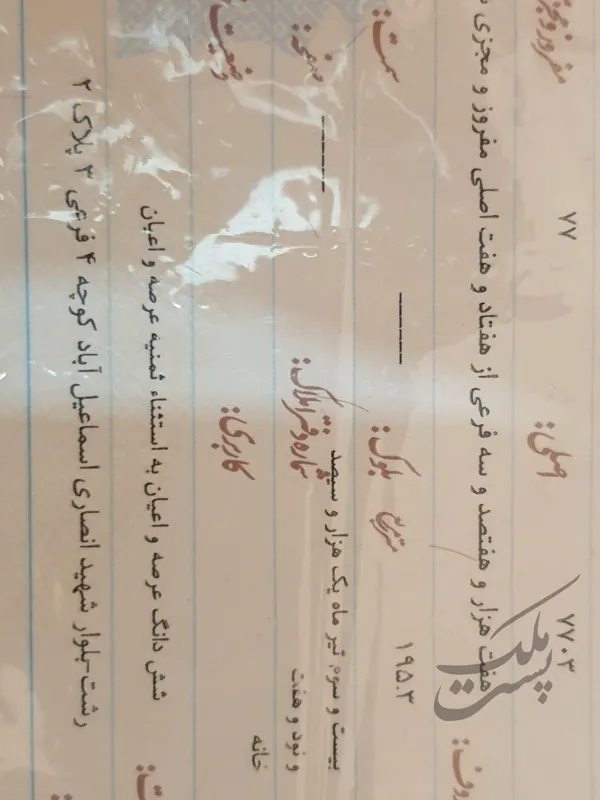 ۷۷۰۳ اصلی: ۷۷ مفروز و مجزی
هفت هزار و هفتصد و سه فرعی از هفتاد و هفت اصلی مفروز و مجزی
۱۹۵.۳ بلوک: ------ سمت:
بیست و سوم تیر ماه یک هزار و سیصد
و نود و هفت شماره دفتر املاک: ------
خانه کاربری: وضعیت
شش دانگ عرصه و اعیان به استثناء ثمنیه عرصه و اعیان
رشت-بلوار شهید انصاری اسماعیل آباد کوچه ۴ فرعی ۳ پلاک ۲
پست ملک